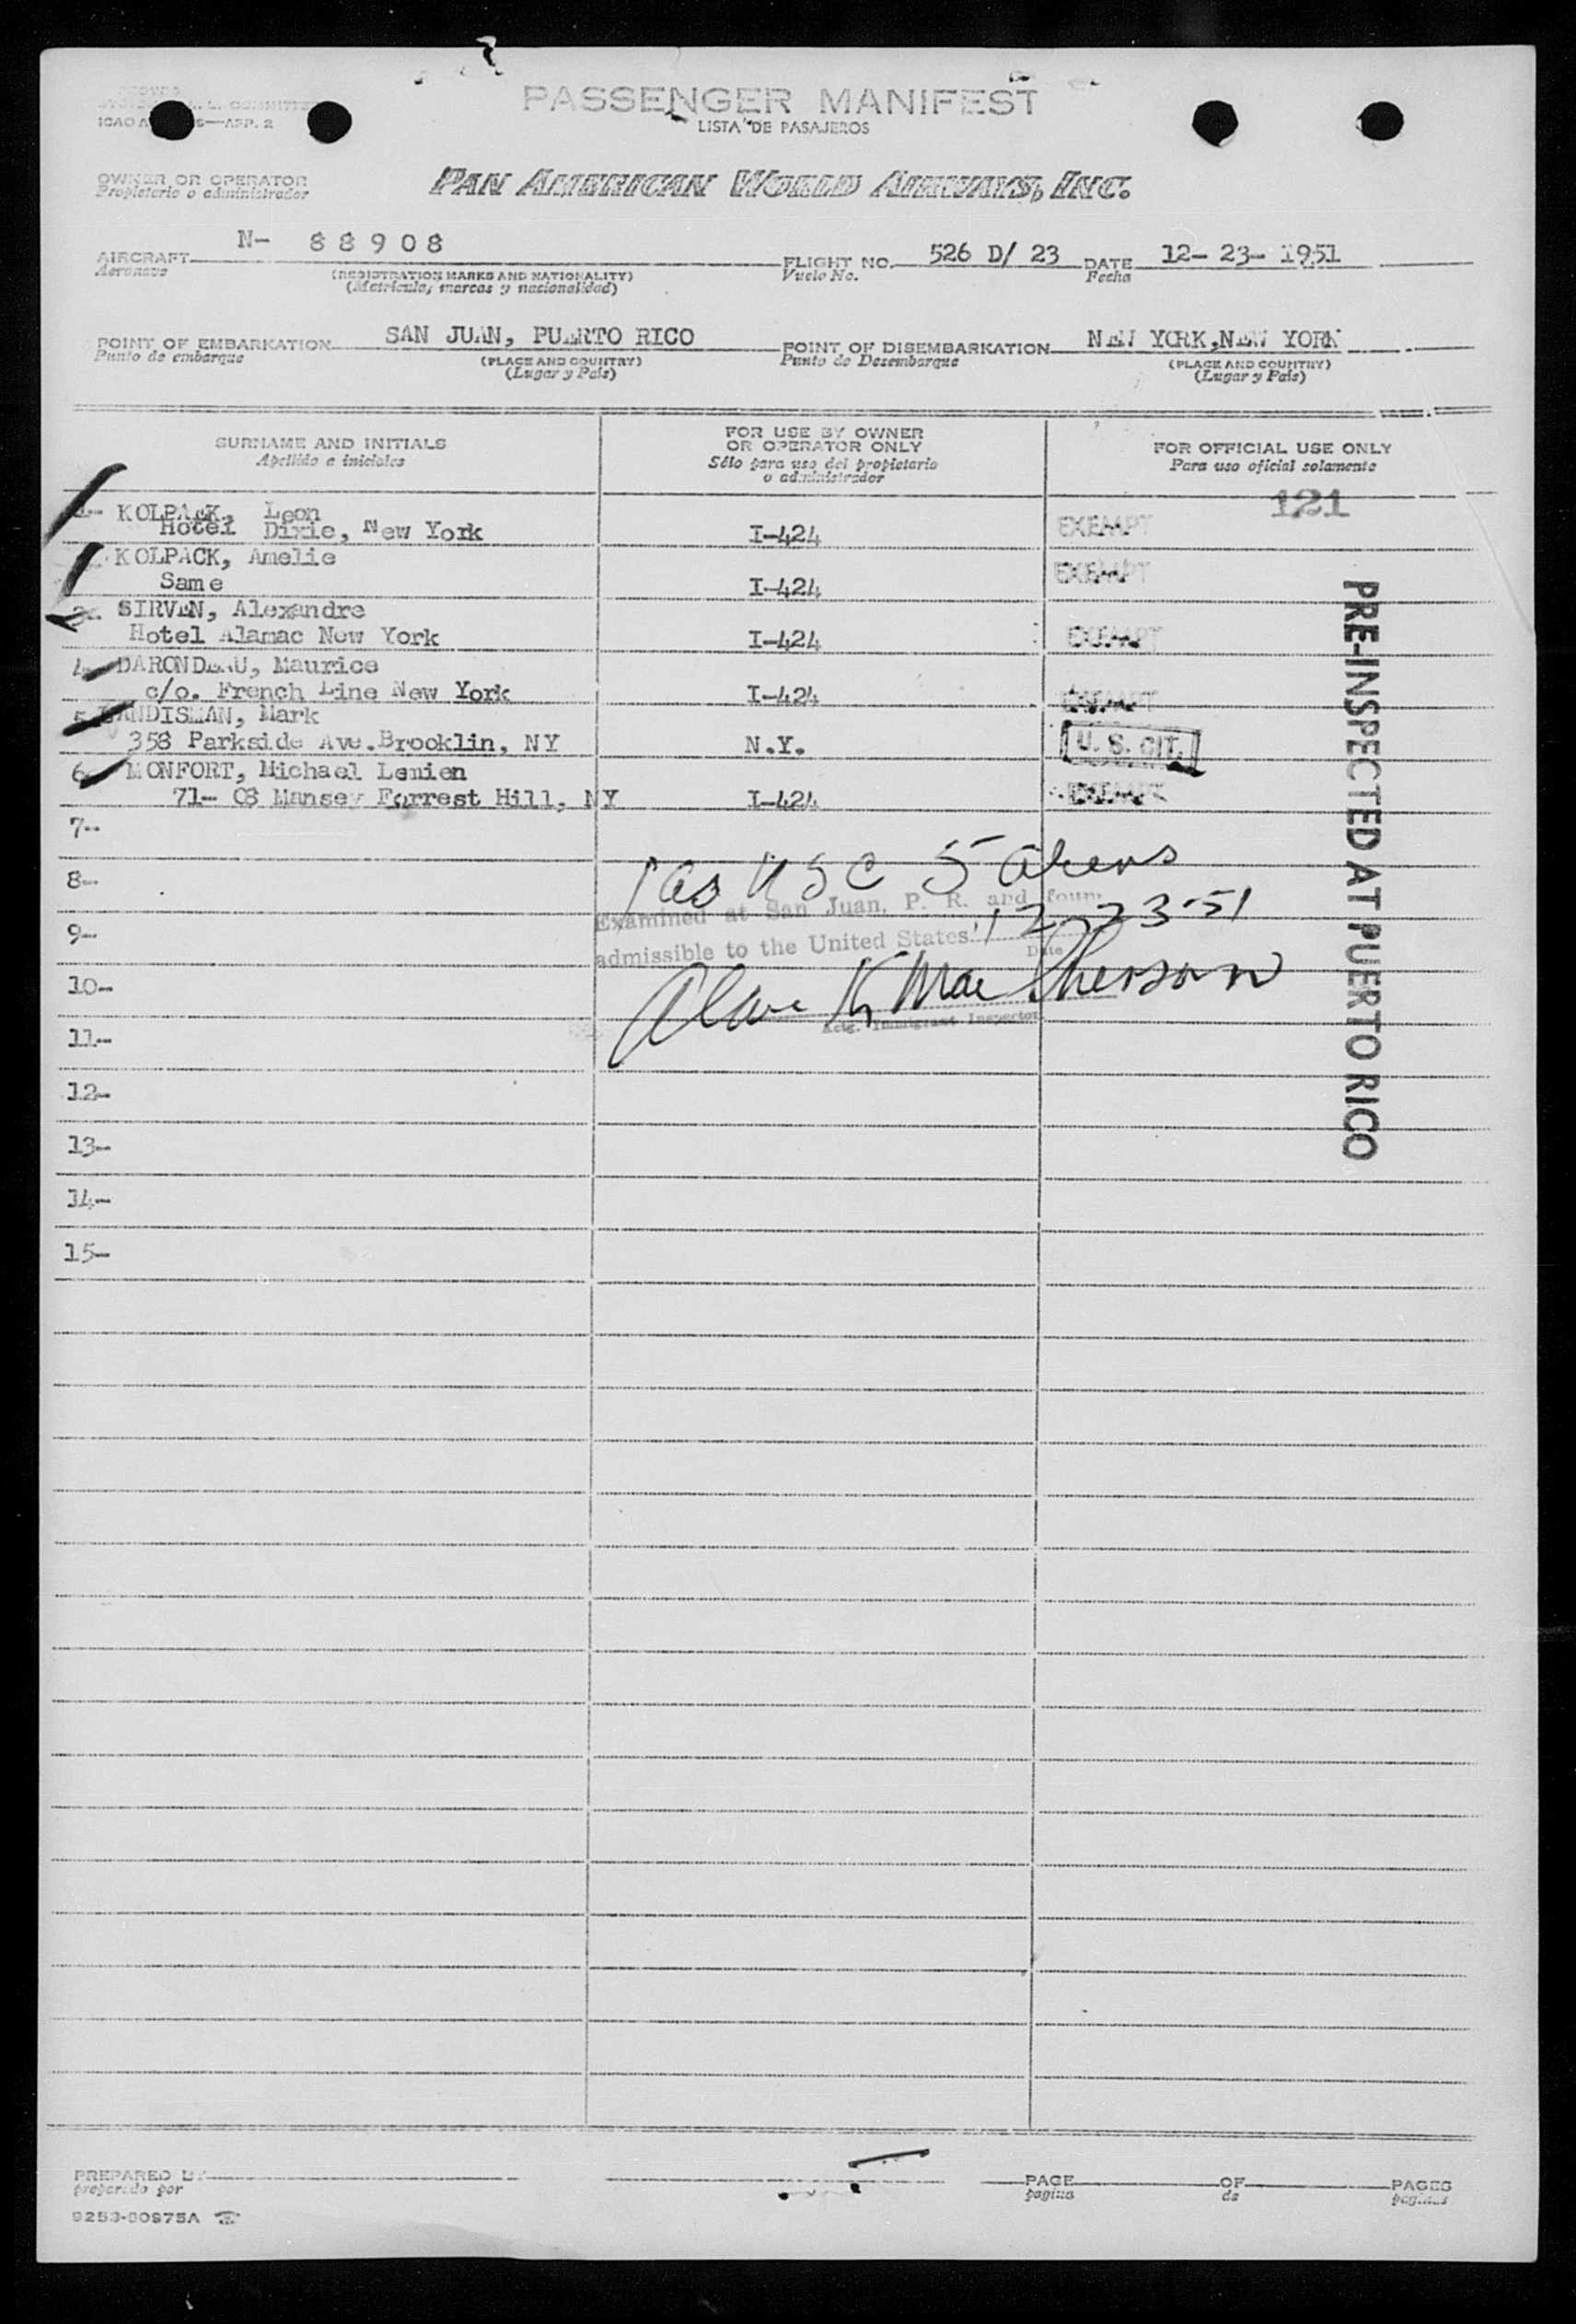 PASSENGER MANIFEST
LISTA DE PASAJEROS
ICAO A S—APP. 2
OWNER OR OPERATOR
Propietario o administrador
PAN AMERICAN WORLD AIRWAYS, INC.
AIRCRAFT N- 88908
Aeronave
(REGISTRATION MARKS AND NATIONALITY)
(Matricula, marcas y nacionalidad)
FLIGHT NO. 526 D/ 23 DATE 12- 23- 1951
Vuelo No. Fecha
POINT OF EMBARKATION SAN JUAN, PUERTO RICO
Punto de embarque
(PLACE AND COUNTRY)
(Lugar y País)
POINT OF DISEMBARKATION NEW YORK,NEW YORK
Punto de Desembarque
(PLACE AND COUNTRY)
(Lugar y País)
SURNAME AND INITIALS
Apellido e iniciales
FOR USE BY OWNER
OR OPERATOR ONLY
Sólo para uso del propietario
o administrador
FOR OFFICIAL USE ONLY
Para uso oficial solamente
121
1- KOLPACK, Leon
Hotel Dixie, New York I-424 EXEMPT
KOLPACK, Amelie
Same I-424 EXEMPT
3- SIRVEN, Alexandre
Hotel Alamac New York I-424 EXEMPT
4- DARONDEAU, Maurice
c/o. French Line New York I-424 EXEMPT
5 LANDISMAN, Mark
358 Parkside Ave.Brooklin, NY N.Y. U. S. CIT.
6- MONFORT, Michael Lemien
71- 08 Mansey Forrest Hill, NY I-424 EXEMPT
7--
8--
9--
10-
11-
12-
13-
14-
15-
1 as USC 5 aliens
Examined at San Juan, P. R. and foun
admissible to the United States 12-23-51
Date
Alan K MacPherson
Actg. Immigrant Inspector
PRE-INSPECTED AT PUERTO RICO
PREPARED BY
preparado por
PAGE OF PAGES
pagina de paginas
9253-60975A